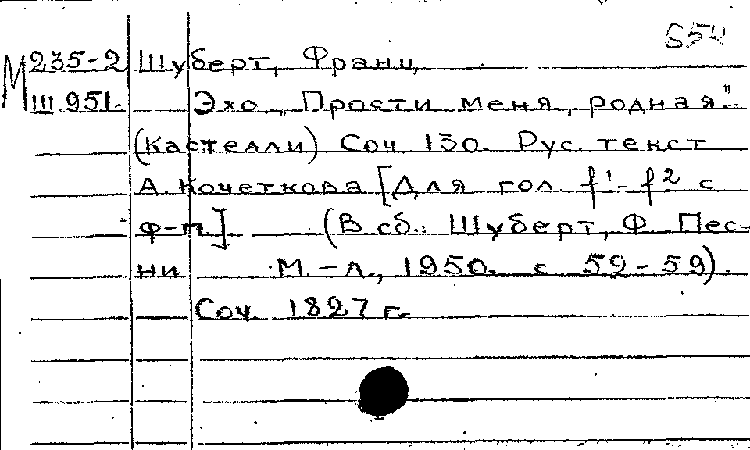 654
М 235-2 Шуберт, Франц
Ш 951. Эхо „Прости меня, родная".
(Кастелли) Соч 130. Рус. текст
А. Кочеткова [Для гол. f¹-f² с
ф-п] (В сб.: Шуберт, Ф. Пес-
ни М.-Л., 1950. с 52-59).
Соч. 1827 г.